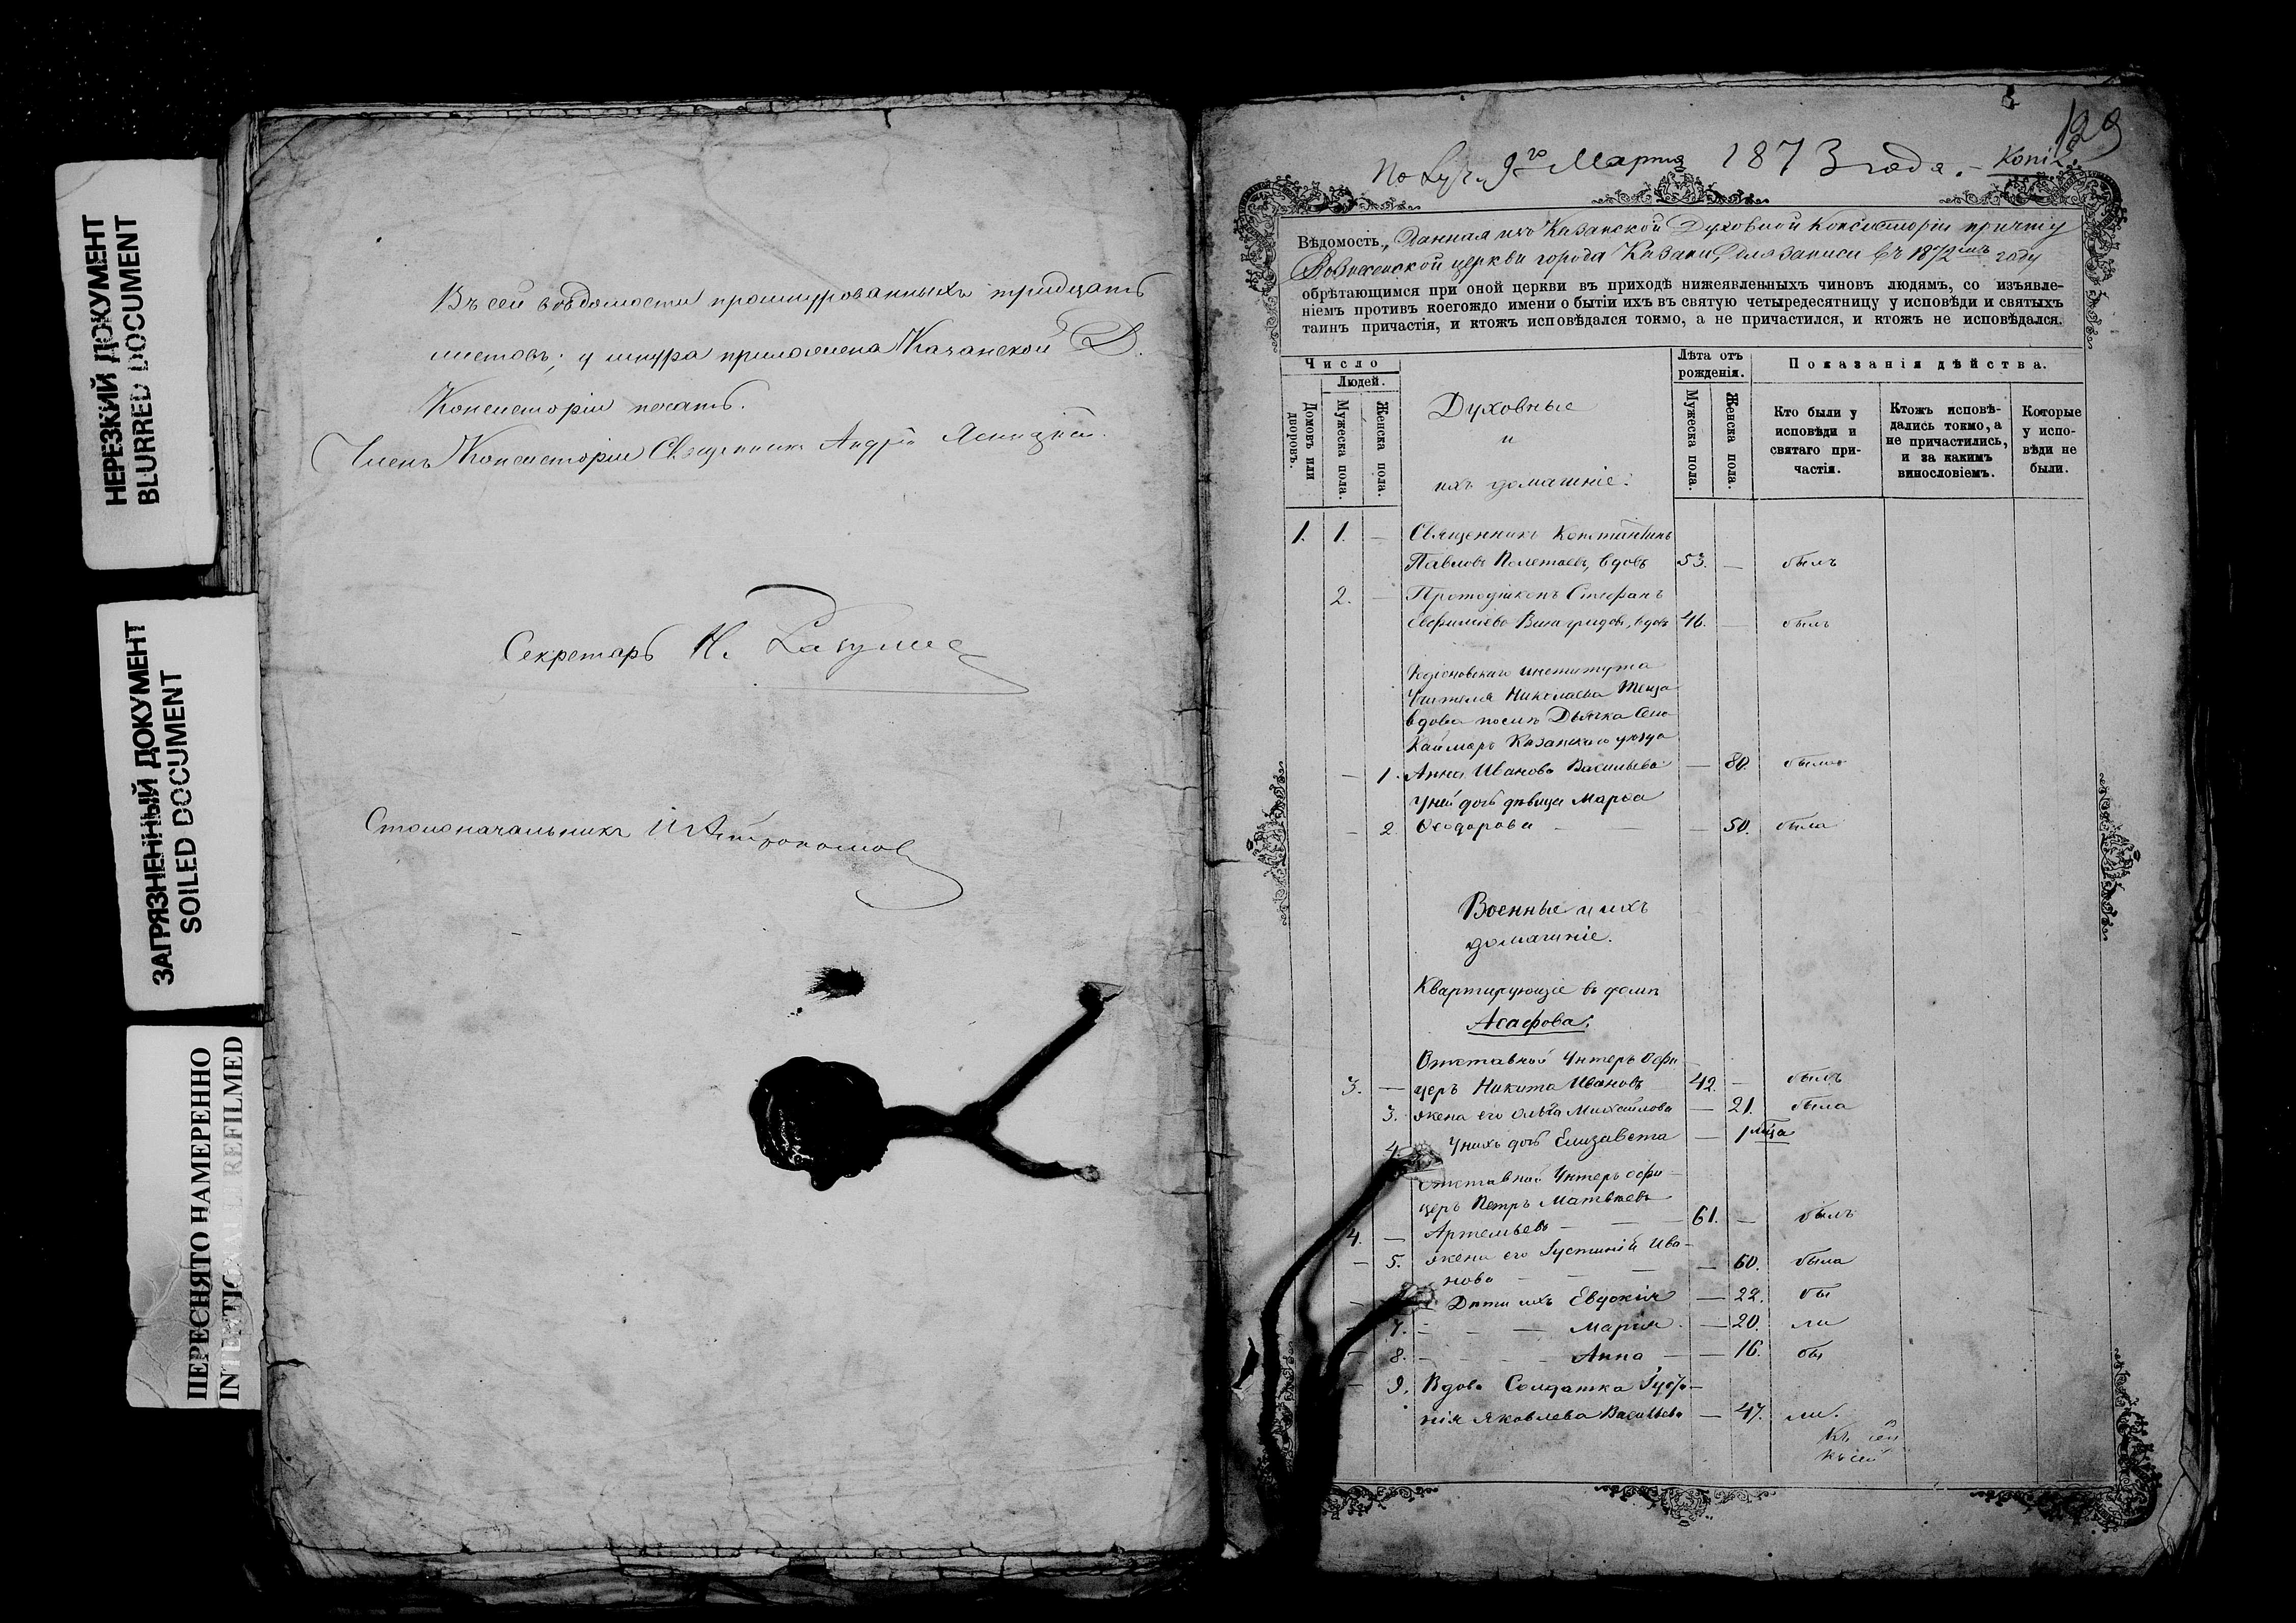 НЕРЕЗКИЙ ДОКУМЕНТ
BLURRED DOCUMENT
ЗАГРЯЗНЕННЫЙ ДОКУМЕНТ
SOILED DOCUMENT
ПЕРЕСНЯТО НАМЕРЕННО
INTENTIONALLY REFILMED
Въ сей вѣдомости прошнурованныхъ тридцать
листовъ; у шнура приложена Казанской Д.
Консисторіи печать.
Членъ Консисторіи Священникъ Андрей
Секретарь Н.
Столоначальникъ
129
9го Марта 1873 года. — Копія.
Вѣдомость, Данная изъ Казанской Духовной Консисторіи причту
Вознесенской церкви города Казани, для записи въ 1872мъ году
обрѣтающимся при оной церкви въ приходѣ нижеявленныхъ чиновъ людямъ, со изъявле-
ніемъ противъ коегождо имени о бытіи ихъ въ святую четыредесятницу у исповѣди и святыхъ
таинъ причастія, и ктожъ исповѣдался токмо, а не причастился, и ктожъ не исповѣдался.
Число
Людей.
Домовъ или дворовъ.
Мужеска пола.
Женска пола.
Духовные
и
ихъ домашніе:
Лѣта отъ рожденія.
Мужеска пола.
Женска пола.
Показанія дѣйства.
Кто были у исповѣди и святаго при-частія.
Ктожъ исповѣ-дались токмо, а не причастились, и за какимъ винословіемъ.
Которые у испо-вѣди не были.
1. 1. — Священникъ Константинъ
Павловъ Полетаевъ, вдовъ 53. — былъ
2. — Протодіаконъ Стефанъ
Евфиміевъ Виноградовъ, вдовъ 46. — былъ
Родіоновскаго института
Учителя Николаева теща
вдова послѣ Дьячка села
Каймаръ Казанскаго уѣзда
— 1. Анна Иванова Васильева — 80. была
У ней дочь дѣвица Марѳа
— 2. Ѳеодорова — — — 50. была
Военные и ихъ
домашніе.
Квартирующіе въ домѣ
Асафова:
Отставной Унтеръ Офи-
3. — церъ Никита Ивановъ 42. — былъ
3. жена его Ольга Михайлова — 21. была
4. У нихъ дочь Елизавета — 1
Отставной Унтеръ офи-
церъ Петръ Матвѣевъ
4. — Артемьевъ — — — 61. — былъ
— 5. жена его Іустинія Ива-
нова — — — — 60. была
— Дѣти ихъ Евдокія — 22. бы
— 7. — — — Марія — 20. ли
— 8. — — — Анна — 16. бы
— 9. Вдова Солдатка
нія Яковлева Васильева — 47. ли.